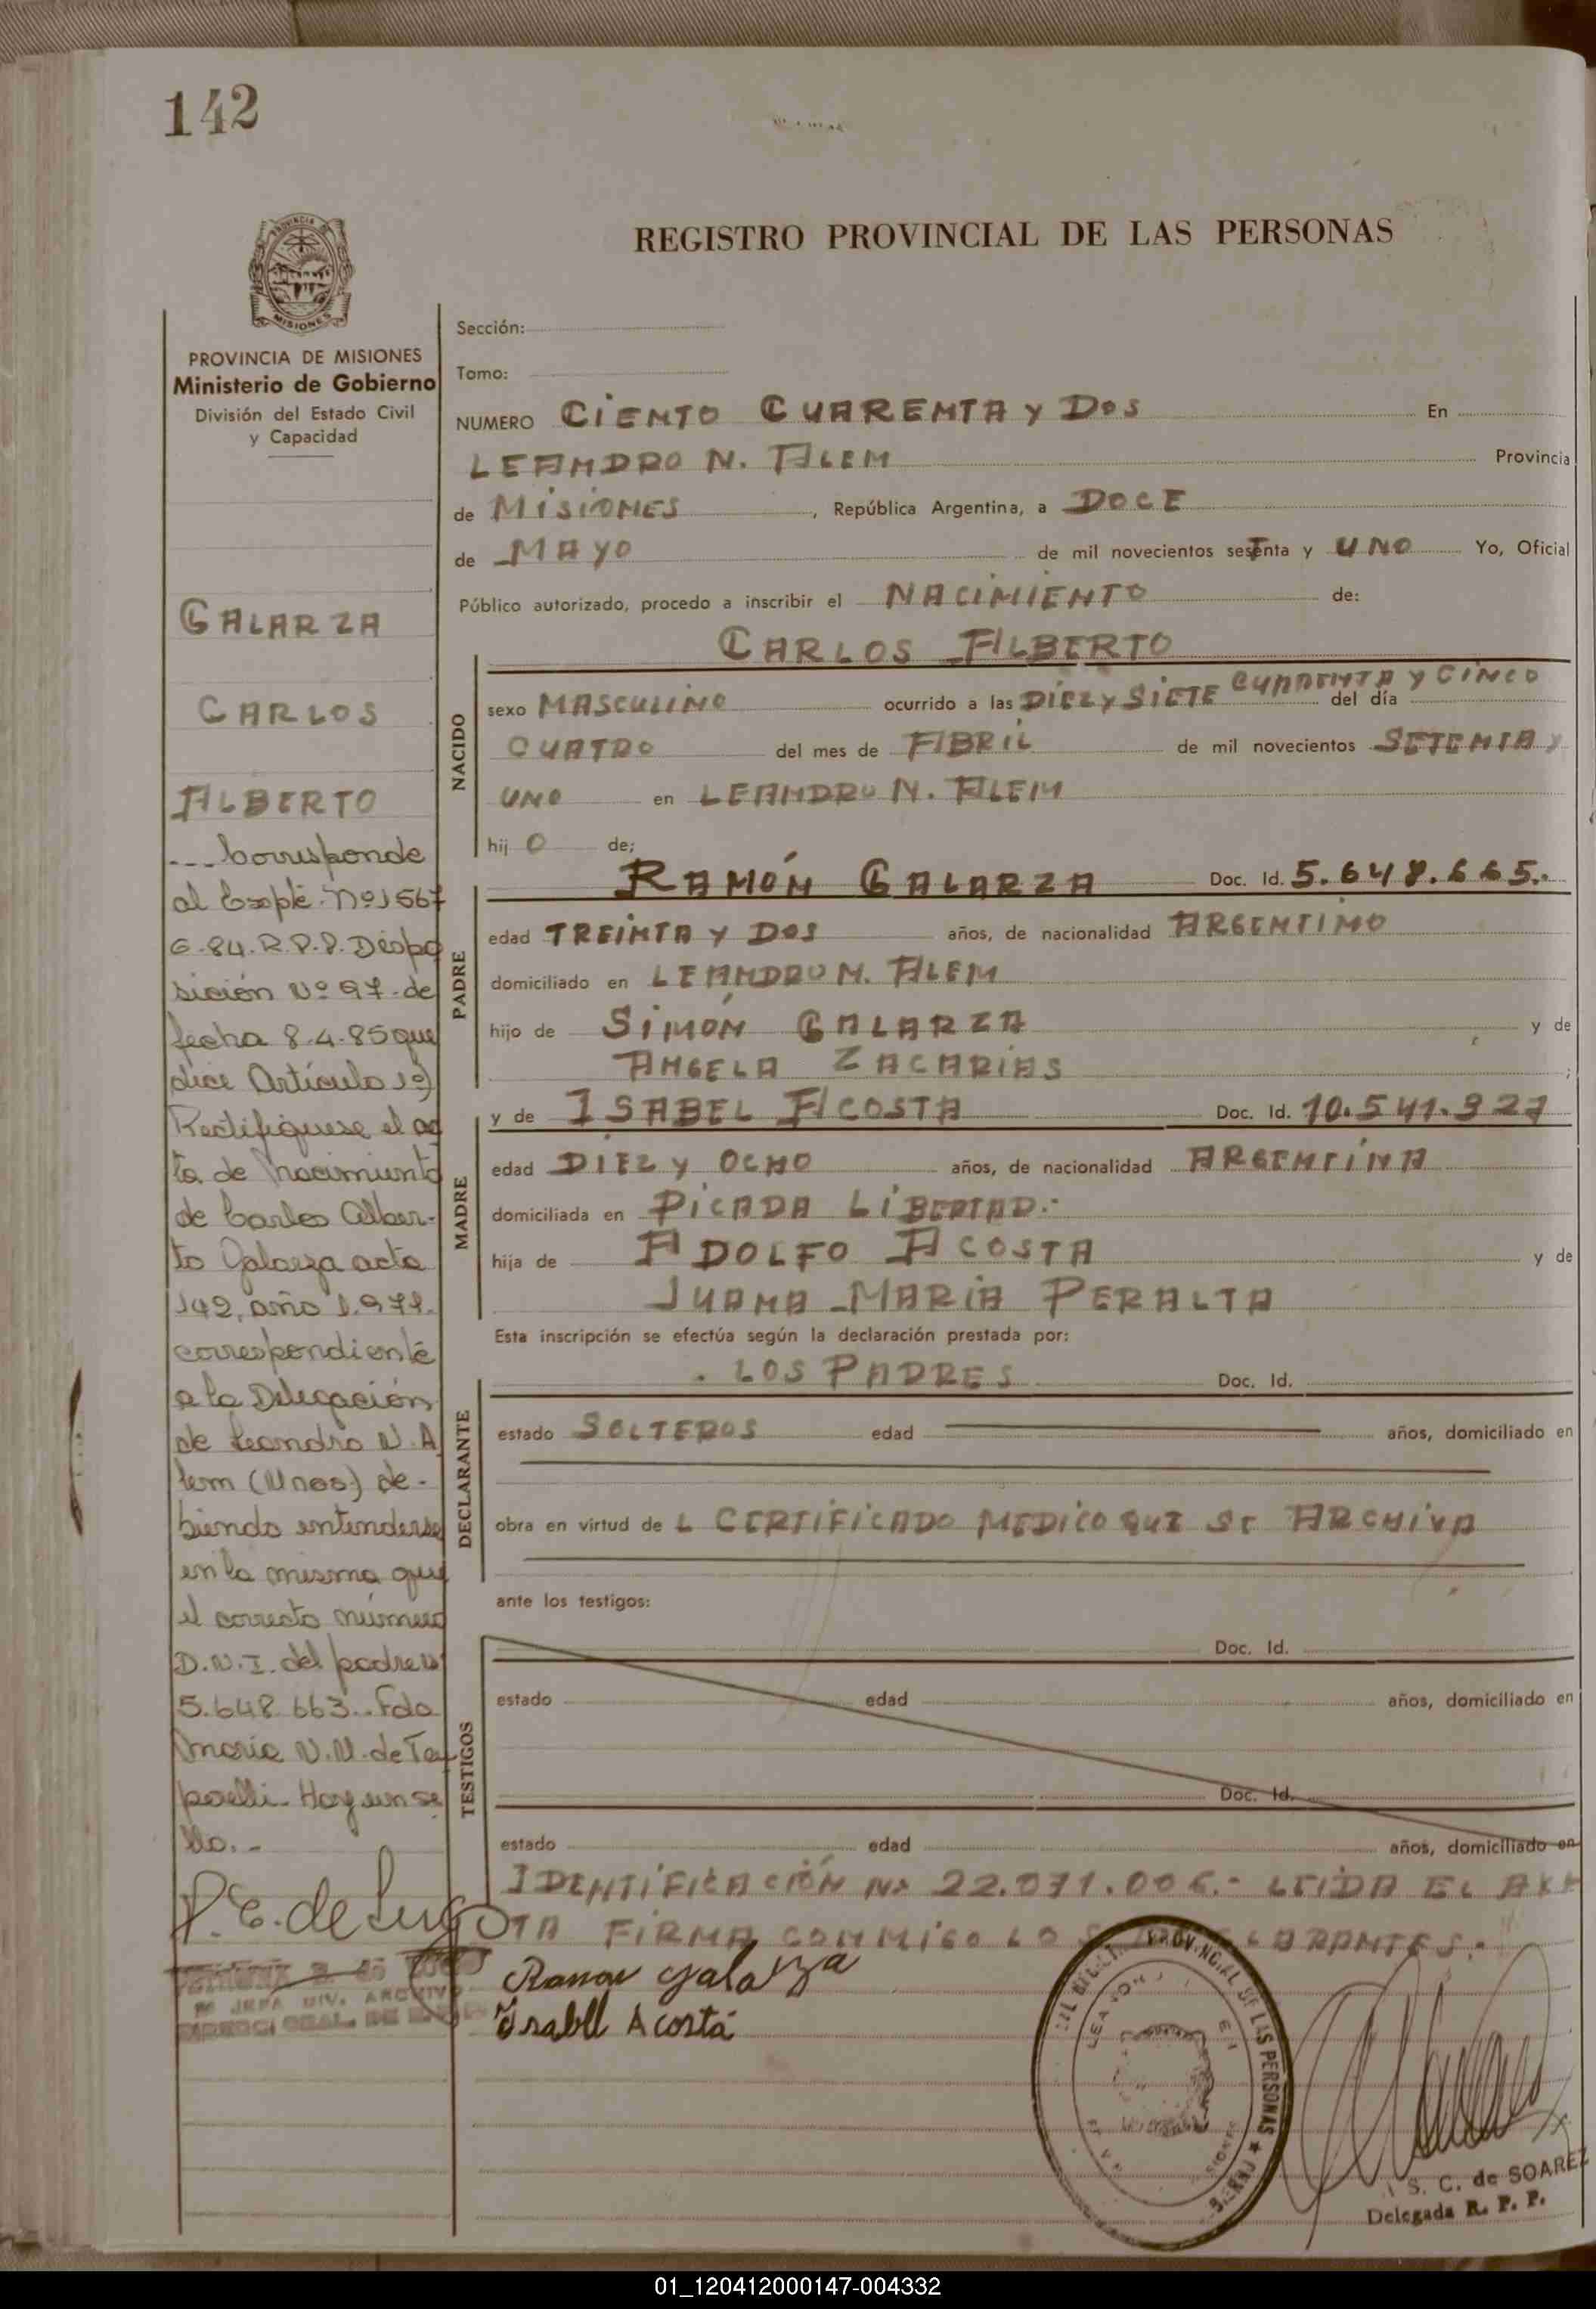 142
REGISTRO PROVINCIAL DE LAS PERSONAS
PROVINCIA
MISIONES
PROVINCIA DE MISIONES
Ministerio de Gobierno
División del Estado Civil
y Capacidad
GALARZA
CARLOS
ALBERTO
--- Corresponde
al Expte. Nº 1567
G-84. R.P.P. Dispo
sición Nº 97 de
fecha 8.4.85 que
dice Artículo 1º)
Rectifíquese el ac
ta de Nacimiento
de Carlos Alber-
to Galarza acta
142, año 1.971.
correspondiente
a la Delegación
de Leandro N. A
lem (Mnes) de-
biendo entenderse
en la misma que
el correcto número
D.N.I. del padre es
5.648.663.. Fdo
Maria N.N. de
Hay un se
llo.-
P. E. de Lugo
JEFA DIV. ARCHIVO
Sección:
Tomo:
NUMERO CIENTO CUARENTA Y DOS En
LEANDRO N. ALEM Provincia
de MISIONES , República Argentina, a DOCE
de MAYO de mil novecientos sesTenta y UNO Yo, Oficial
Público autorizado, procedo a inscribir el NACIMIENTO de:
CARLOS ALBERTO
NACIDO
sexo MASCULINO ocurrido a las DIEZ Y SIETE CUARENTA Y CINCO del día
CUATRO del mes de ABRIL de mil novecientos SETENTA Y
UNO en LEANDRO N. ALEM
hij O de;
PADRE
RAMÓN GALARZA Doc. Id. 5.648.665.-
edad TREINTA Y DOS años, de nacionalidad ARGENTINO
domiciliado en LEANDRO N. ALEM
hijo de SIMÓN GALARZA y de
ANGELA ZACARIAS ;
MADRE
y de ISABEL ACOSTA Doc. Id. 10.541.927
edad DIEZ Y OCHO años, de nacionalidad ARGENTINA
domiciliada en PICADA LIBERTAD.-
hija de ADOLFO ACOSTA y de
JUANA MARIA PERALTA
Esta inscripción se efectúa según la declaración prestada por:
DECLARANTE
LOS PADRES Doc. Id.
estado SOLTEROS edad años, domiciliado en
obra en virtud de L CERTIFICADO MEDICO QUE SE ARCHIVA
ante los testigos:
TESTIGOS
Doc. Id.
estado edad años, domiciliado en
Doc. Id.
estado edad años, domiciliado en
IDENTIFICACIÓN Nº 22.071.006.- LEIDA EL
TA FIRMA CONMIGO LOS DECLARANTES.-
Ramon Galarza
Isabel Acosta
PROVINCIAL DE LAS PERSONAS
S. C. de SOAREZ
Delegada R. P. P.
01_120412000147-004332